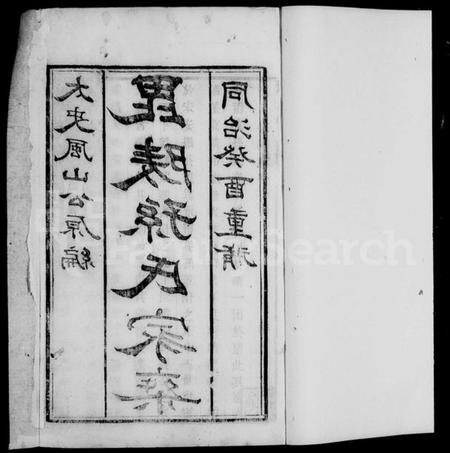 同治癸酉重補
毘陵孫氏宗乘
太史風山公原編
FamilySearch